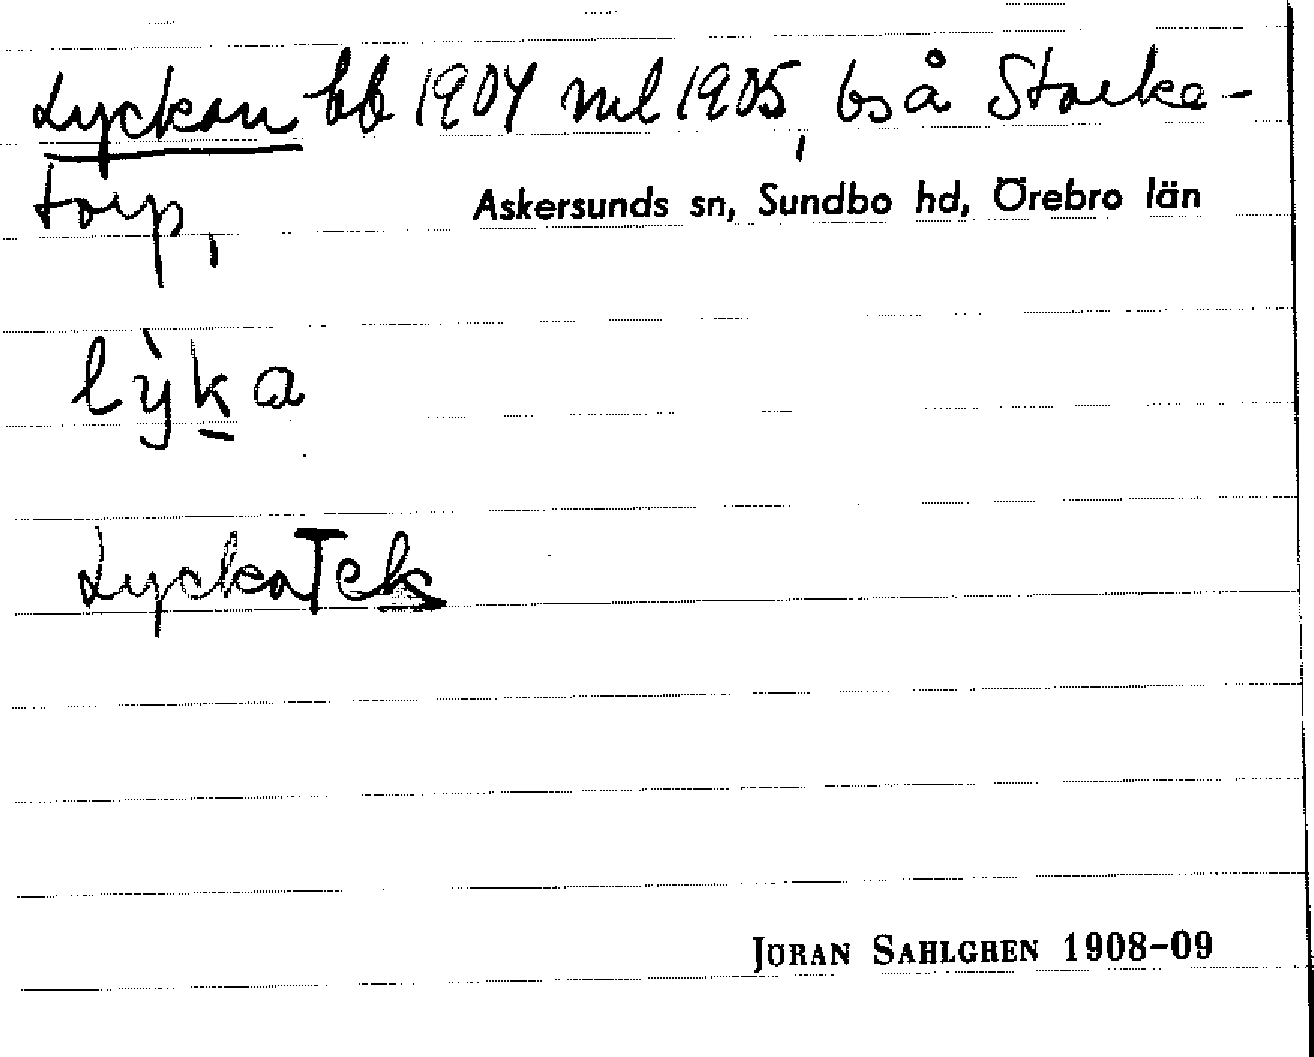 Lyckan bb 1904 ml 1905, bs å Starke-
torp, Askersunds sn, Sundbo hd, Örebro län
lỳka
Lycka Tek
JÖRAN SAHLGREN 1908-09